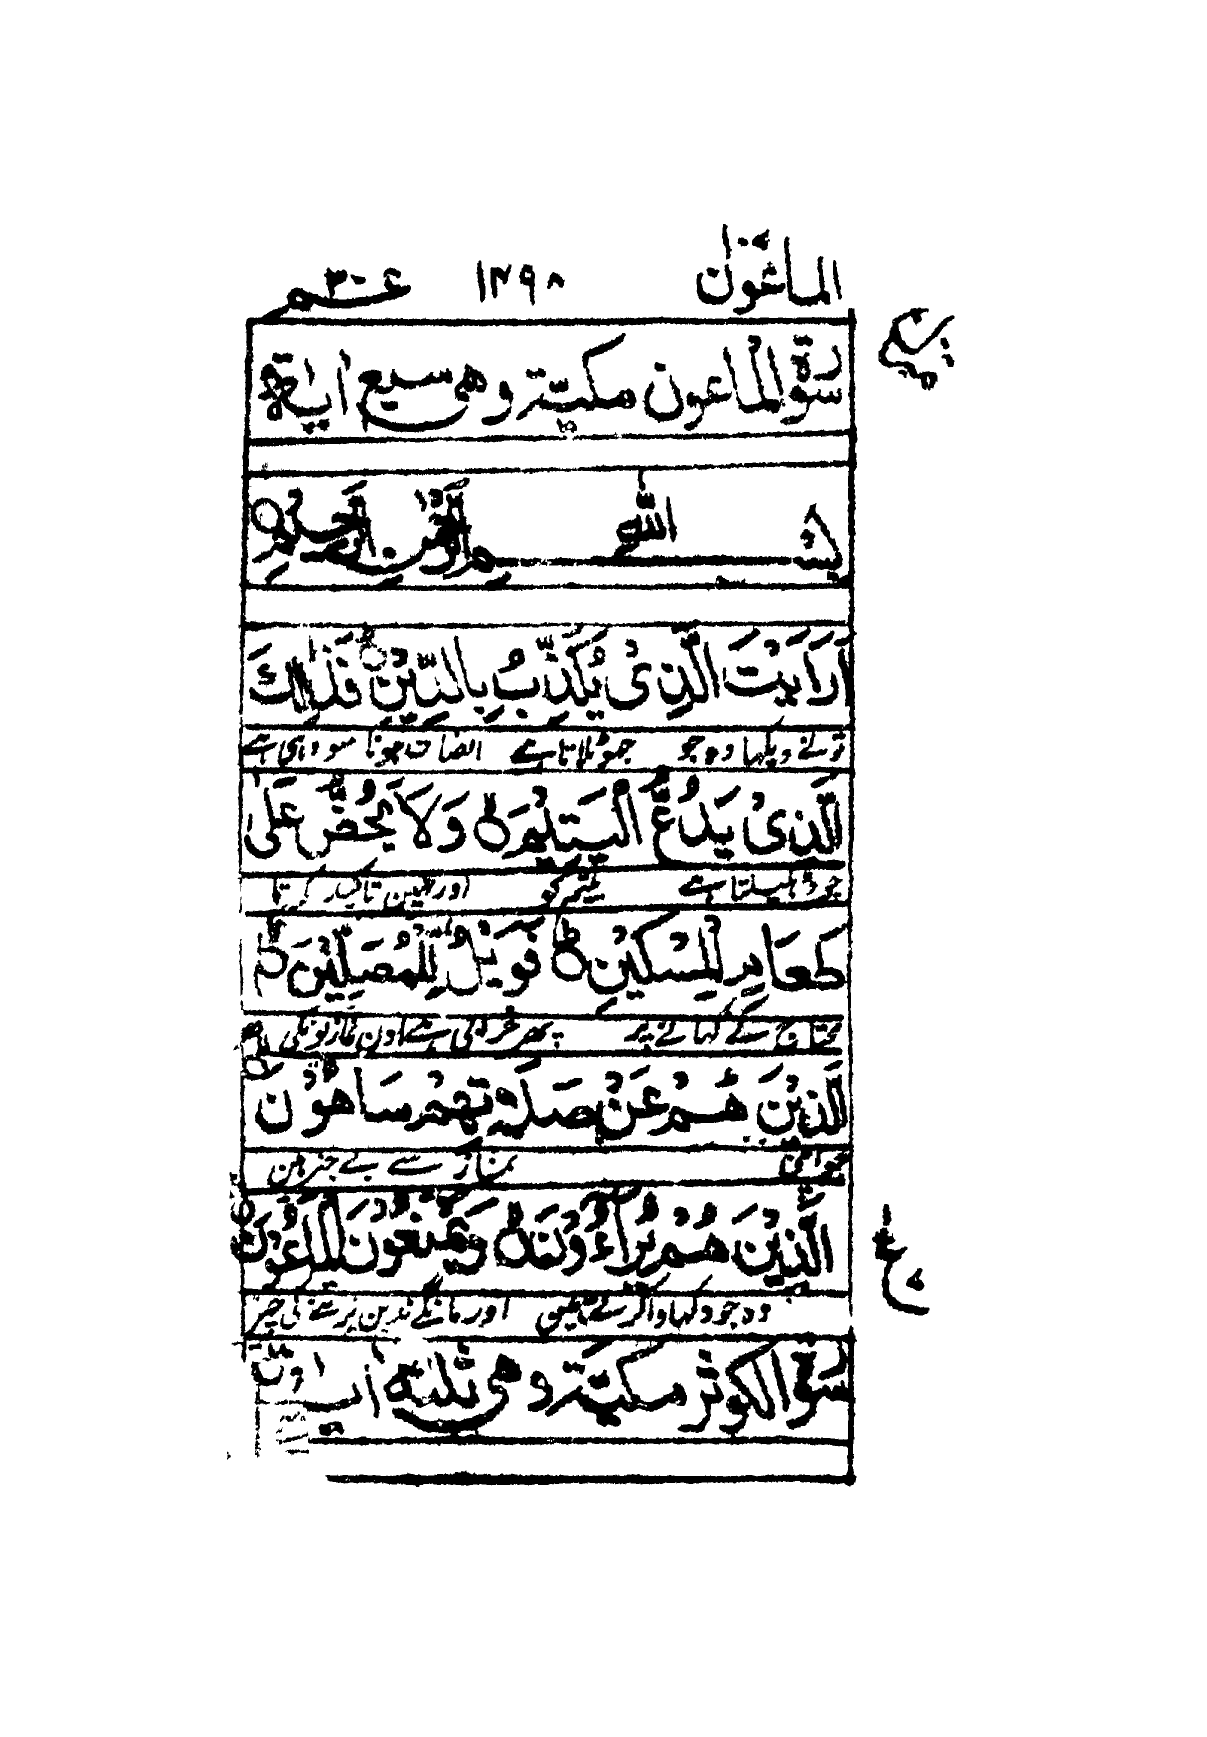 الماعون ۱۴۹۸ عم ۳۰
سورة الماعون مكية وهي سبع آيات
بسم الله الرحمن الرحيم
اَرَاَيْتَ الَّذِىْ يُكَذِّبُ بِالدِّيْنِ فَذٰلِكَ
تونے دیکھا وہ جو جھوٹلاتا ہے انصاف ہونا سو وہی ہے
الَّذِىْ يَدُعُّ الْيَتِيْمَ وَلَا يَحُضُّ عَلٰى
جو ڈھیلتا ہے یتیم کو اور نہین تاکید کرتا
طَعَامِ الْمِسْكِيْنِ فَوَيْلٌ لِّلْمُصَلِّيْنَ
محتاج کے کھانے پر پھر خرابی ہے اون نمازیونکی
الَّذِيْنَ هُمْ عَنْ صَلَاتِهِمْ سَاهُوْنَ
نماز سے بے خبر ہین
الَّذِيْنَ هُمْ يُرَآءُوْنَ وَيَمْنَعُوْنَ الْمَاعُوْنَ
وہ جو دکھاوا کرتے ہین اور مانگے ندین برتنے کی چیز
سورة الكوثر مكية وهي ثلث آيات